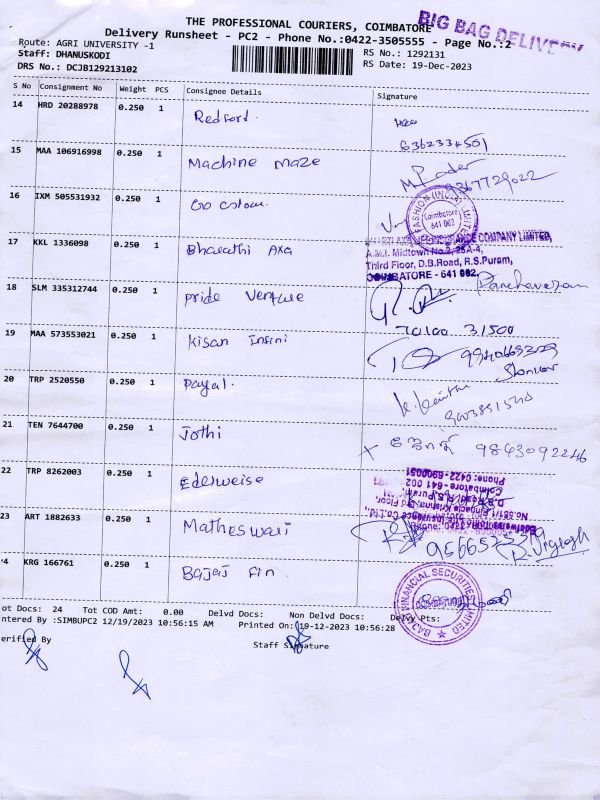 THE PROFESSIONAL COURIERS, COIMBATORE
BIG BAG DELIVERY
Delivery Runsheet - PC2 - Phone No.:0422-3505555 - Page No.:2
Route: AGRI UNIVERSITY -1
RS No.: 1292131
Staff: DHANUSKODI
RS Date: 19-Dec-2023
DRS No.: DCJB129213102
S No Consignment No Weight PCS Consignee Details Signature
14 HRD 20288978 0.250 1 Redford.
6362334501
15 MAA 106916998 0.250 1 Machine maze
9367729022
16 IXM 505531932 0.250 1
FASHION (INDIA)
Coimbatore
641 002
17 KKL 1336098 0.250 1 Bharathi Axa
COMPANY LIMITED,
A.M.I. Midtown No.2, 25A-4,
Third Floor, D.B.Road, R.S.Puram,
COIMBATORE - 641 002.
18 SLM 335312744 0.250 1 pride venture
70100 31500
19 MAA 573553021 0.250 1 Kisan
20 TRP 2520550 0.250 1 Payal.
21 TEN 7644700 0.250 1 Jothi
x ஜோதி 9843092246
22 TRP 8262003 0.250 1 Ederweise
Coimbatore - 641 002
Phone: 0422-
23 ART 1882633 0.250 1 Matheswari
24 KRG 166761 0.250 1 Bajaj Fin
BAJAJ FINANCIAL SECURITIES LIMITED
ot Docs: 24 Tot COD Amt: 0.00 Delvd Docs: Non Delvd Docs: Delvy Pts:
ntered By :SIMBUPC2 12/19/2023 10:56:15 AM Printed On: 19-12-2023 10:56:28
erified By
Staff Signature